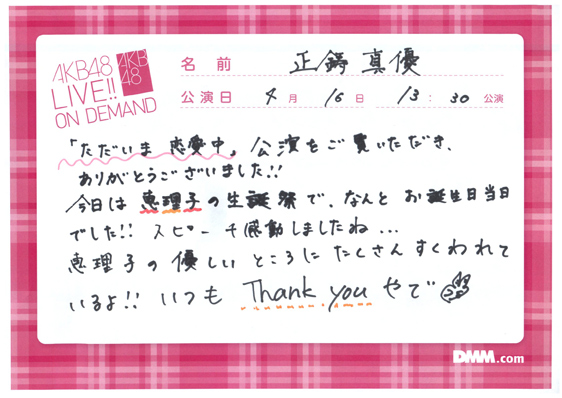 AKB48
LIVE!!
ON DEMAND
AKB
48
名前 正鋳真優
公演日 4月 16日 13:30 公演
「ただいま 恋愛中」公演をご覧いただき、
ありがとうございました!!
今日は 恵理子の生誕祭で、なんと お誕生日当日
でした!! スピーチ感動しましたね...
恵理子の優しいところにたくさんすくわれて
いるよ!! いつも Thank you やで
DMM.com